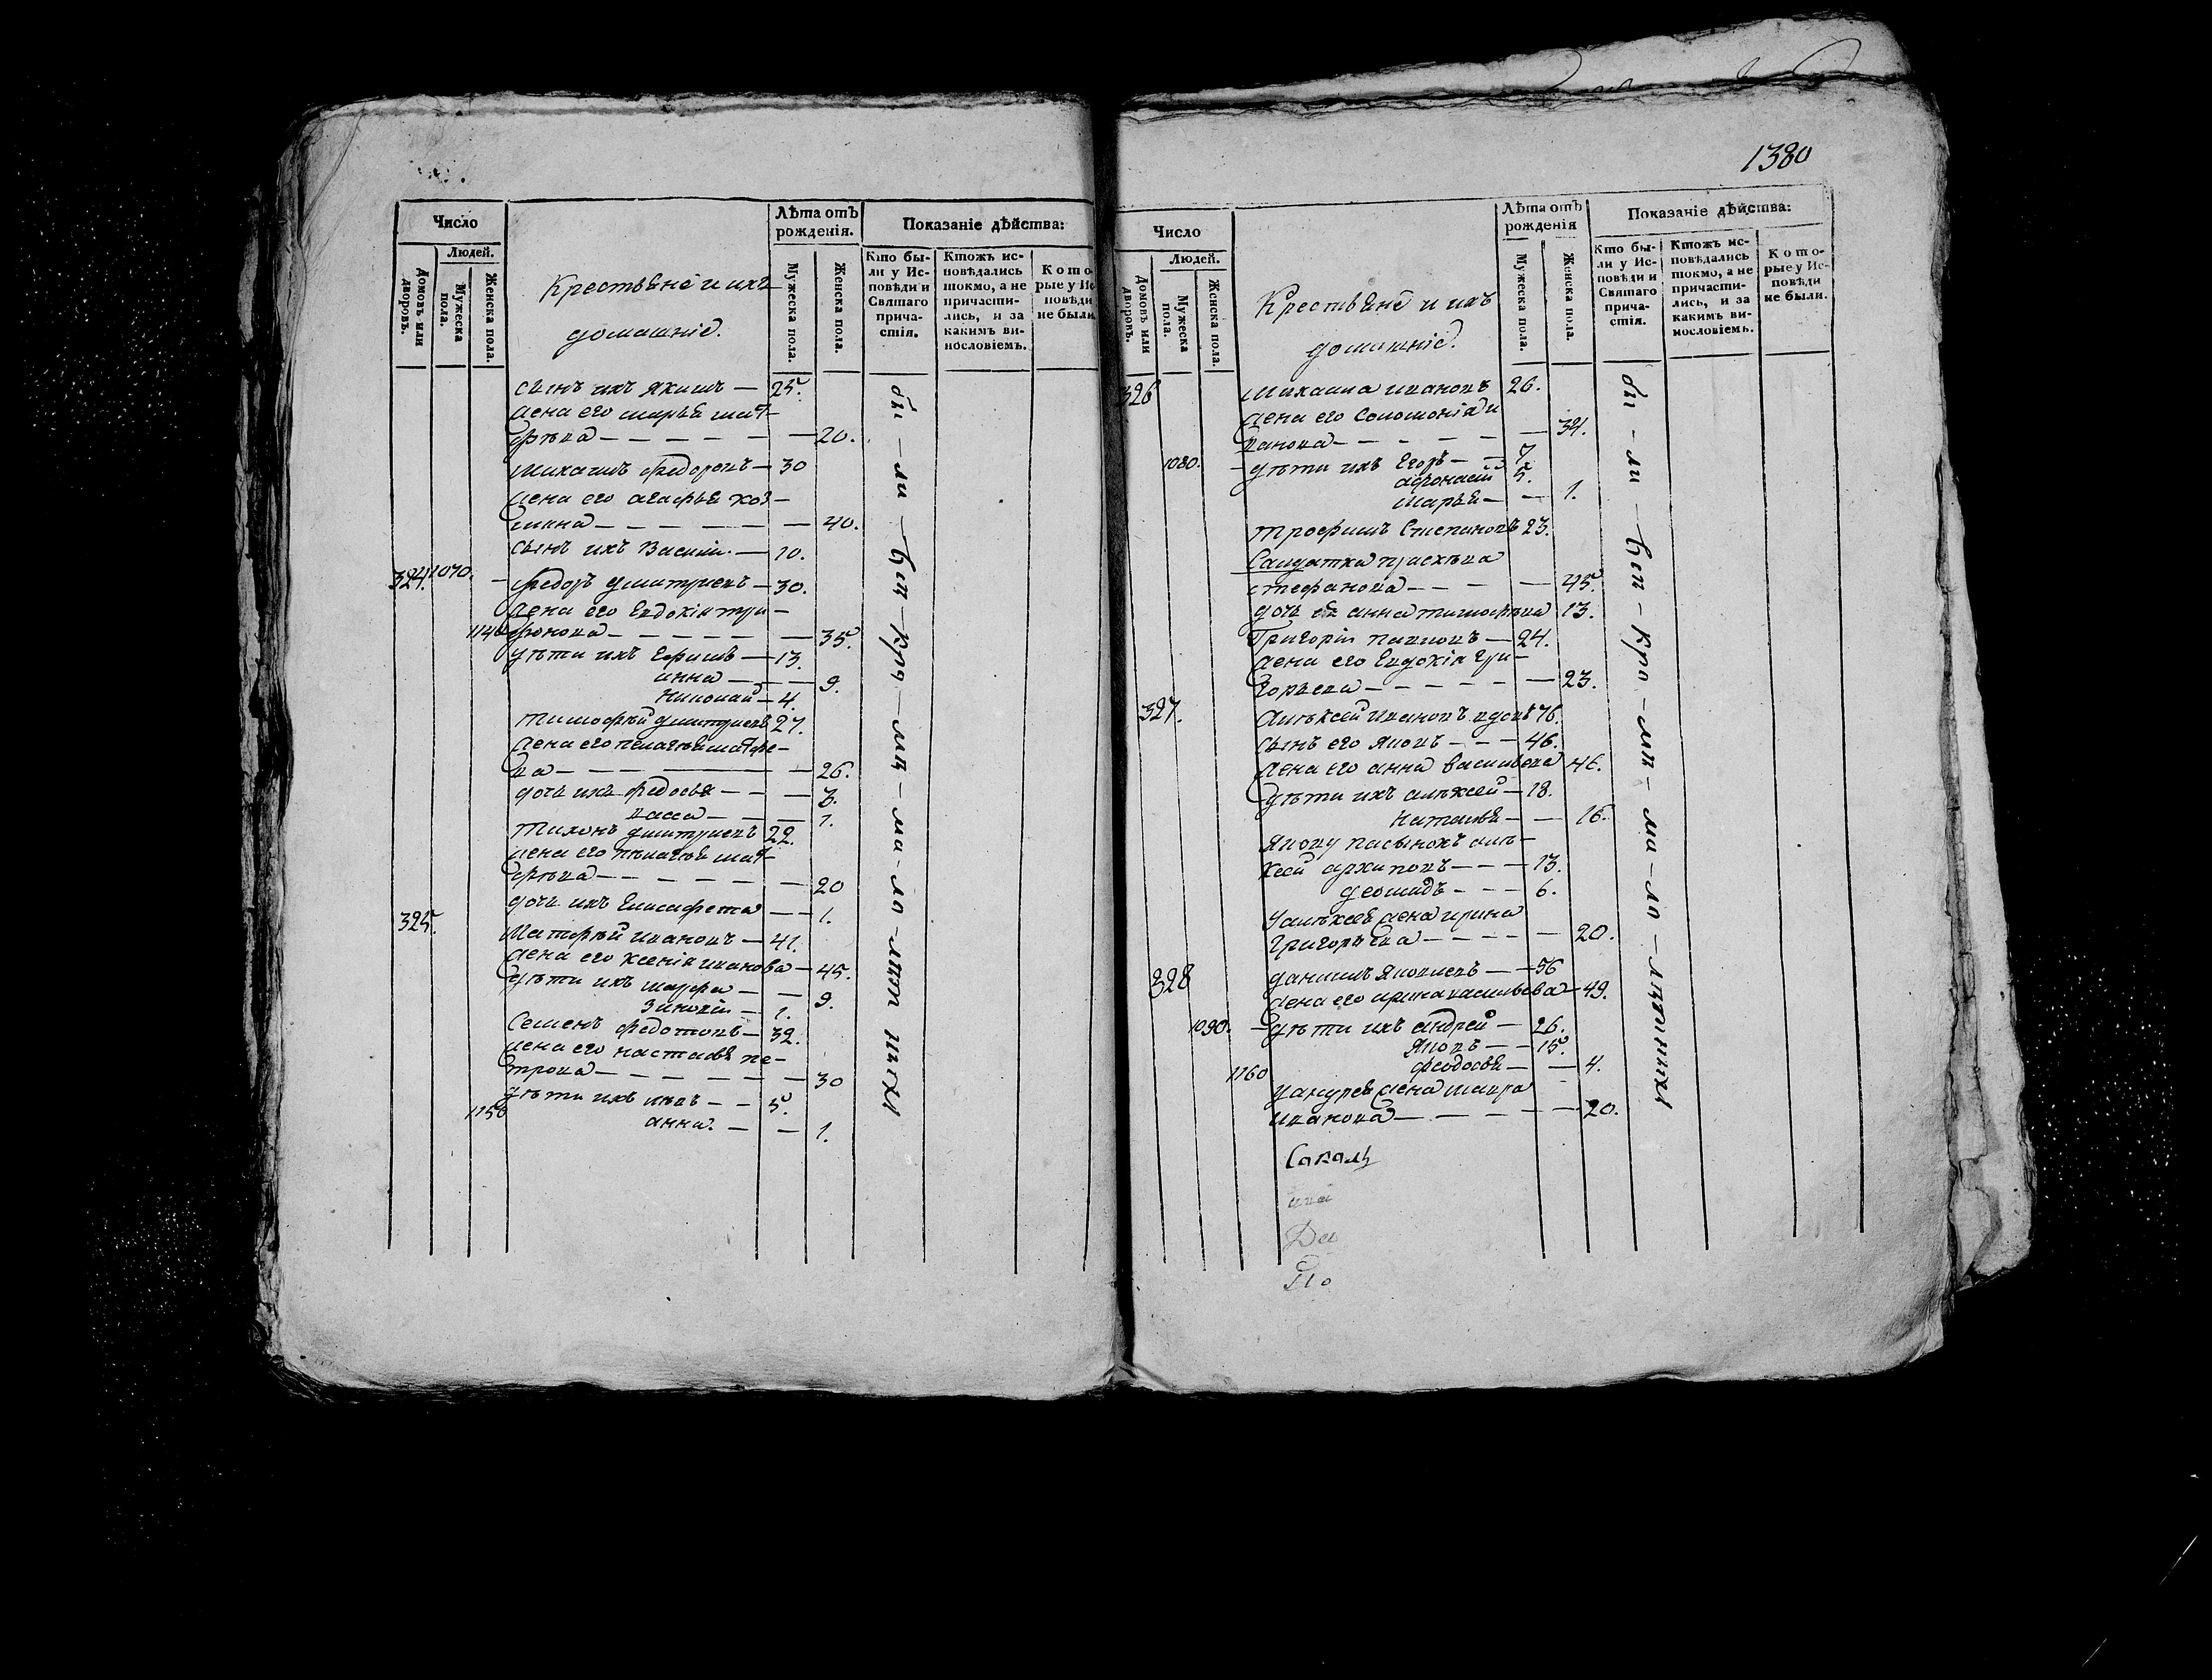 1380
Число
Людей.
Домовъ или дворовъ.
Мужеска пола.
Женска пола.
Крестьяне и ихъ
домашніе.
Лѣта отъ рожденія.
Мужеска пола.
Женска пола.
Показаніе дѣйства:
Кто были у Исповѣди и Святаго причастія.
Ктожъ исповѣдались токмо, а не причастились, и за какимъ винословіемъ.
Которые у Исповѣди не были.
сынъ ихъ Якимъ — 25.
жена его марья мат-
фѣева — 20.
Михаилъ федоровъ — 30
жена его агафья коз-
мина — 40.
сынъ ихъ Василій — 10.
324. 1070. федоръ дмитриевъ — 30.
жена его Евдокія три-
фонова — 35.
1140
дѣти ихъ Ефимъ — 13.
анна — 9.
николай — 4.
тимофѣй дмитриевъ 27.
жена его пелагѣя матфѣе-
ва — 26.
дочь ихъ федосья — 3.
васса — 1.
тихонъ дмитриевъ 22.
жена его пелагѣя мат-
фѣева — 20
дочь ихъ Елисафета — 1.
325. Матфѣй ивановъ — 41.
жена его ксенія иванова — 45.
дѣти ихъ марфа — 9.
зиновій — 1.
Семенъ федотовъ — 32.
жена его настасья пе-
трова — 30
дѣти ихъ — 5.
1150 анна. — 1.
бы — ли — Всп — Кро — мѣ — ма — ло — лѣтнихъ
Число
Людей.
Домовъ или дворовъ.
Мужеска пола.
Женска пола.
Крестьяне и ихъ
домашніе.
Лѣта отъ рожденія
Мужеска пола.
Женска пола.
Показаніе дѣйства:
Кто были у Исповѣди и Святаго причастія.
Ктожъ исповѣдались токмо, а не причастились, и за какимъ винословіемъ.
Которые у Исповѣди не были.
326 Михаила ивановъ 26.
жена его Соломонія и
ванова — 34.
1080. дѣти ихъ Егоръ — 7.
афонасій 5.
Марья — 1.
трофимъ Степановъ 23.
Салдатка
стефанова — 45.
дочь ея анна тимофѣева 13.
Григорій — 24.
жена его Евдокія гри-
горьева — 23.
327. Алѣксей ивановъ вдовъ 76.
сынъ его Яковъ — 46.
жена его анна васильева 46.
дѣти ихъ алѣксей — 18.
Наталья — 16.
Якову пасынокъ алѣ-
ксей архиповъ — 13.
деомидъ — 6.
У алѣксея жена ирина
григорьева — 20.
328 данилъ Яковлевъ — 56
жена его ирина васильева — 49.
1090. дѣти ихъ андрей — 26.
Яковъ — 15.
1160 феодосья — 4.
У андрея жена мавра
иванова — 20.
бы — ли — Всп — Кро — мѣ — ма — ло — лѣтнихъ